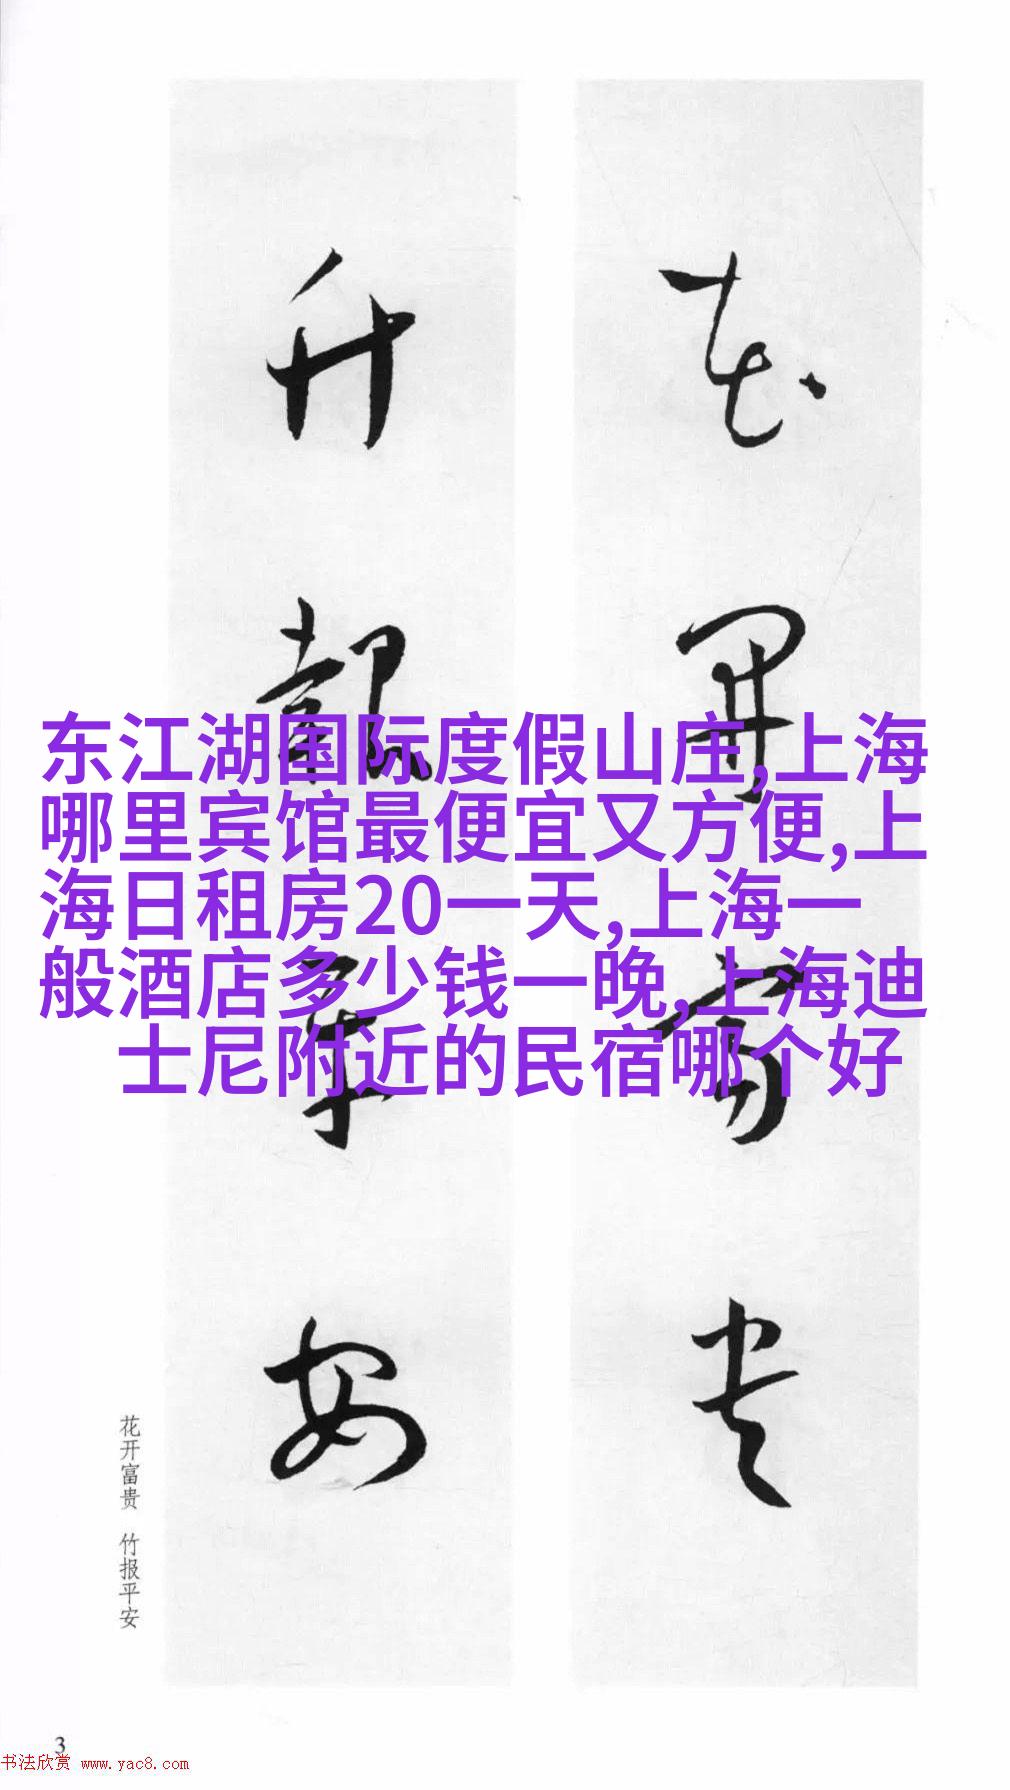 东江湖国际度假山庄,上海
哪里宾馆最便宜又方便,上
海日租房20一天,上海一
般酒店多少钱一晚,上海迪
士尼附近的民宿哪个好
花开富贵
竹报平安
花开富贵 竹报平安
3
书法欣赏 www.yac8.com